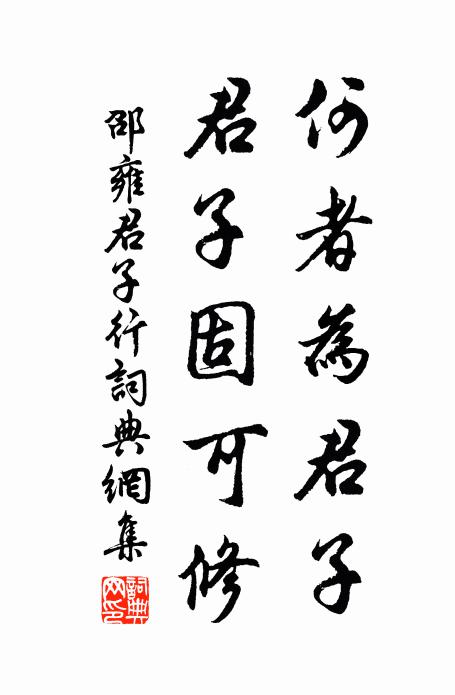 何者為君子
君子固可修
邵雍君子行詞典網集
詞典
网印